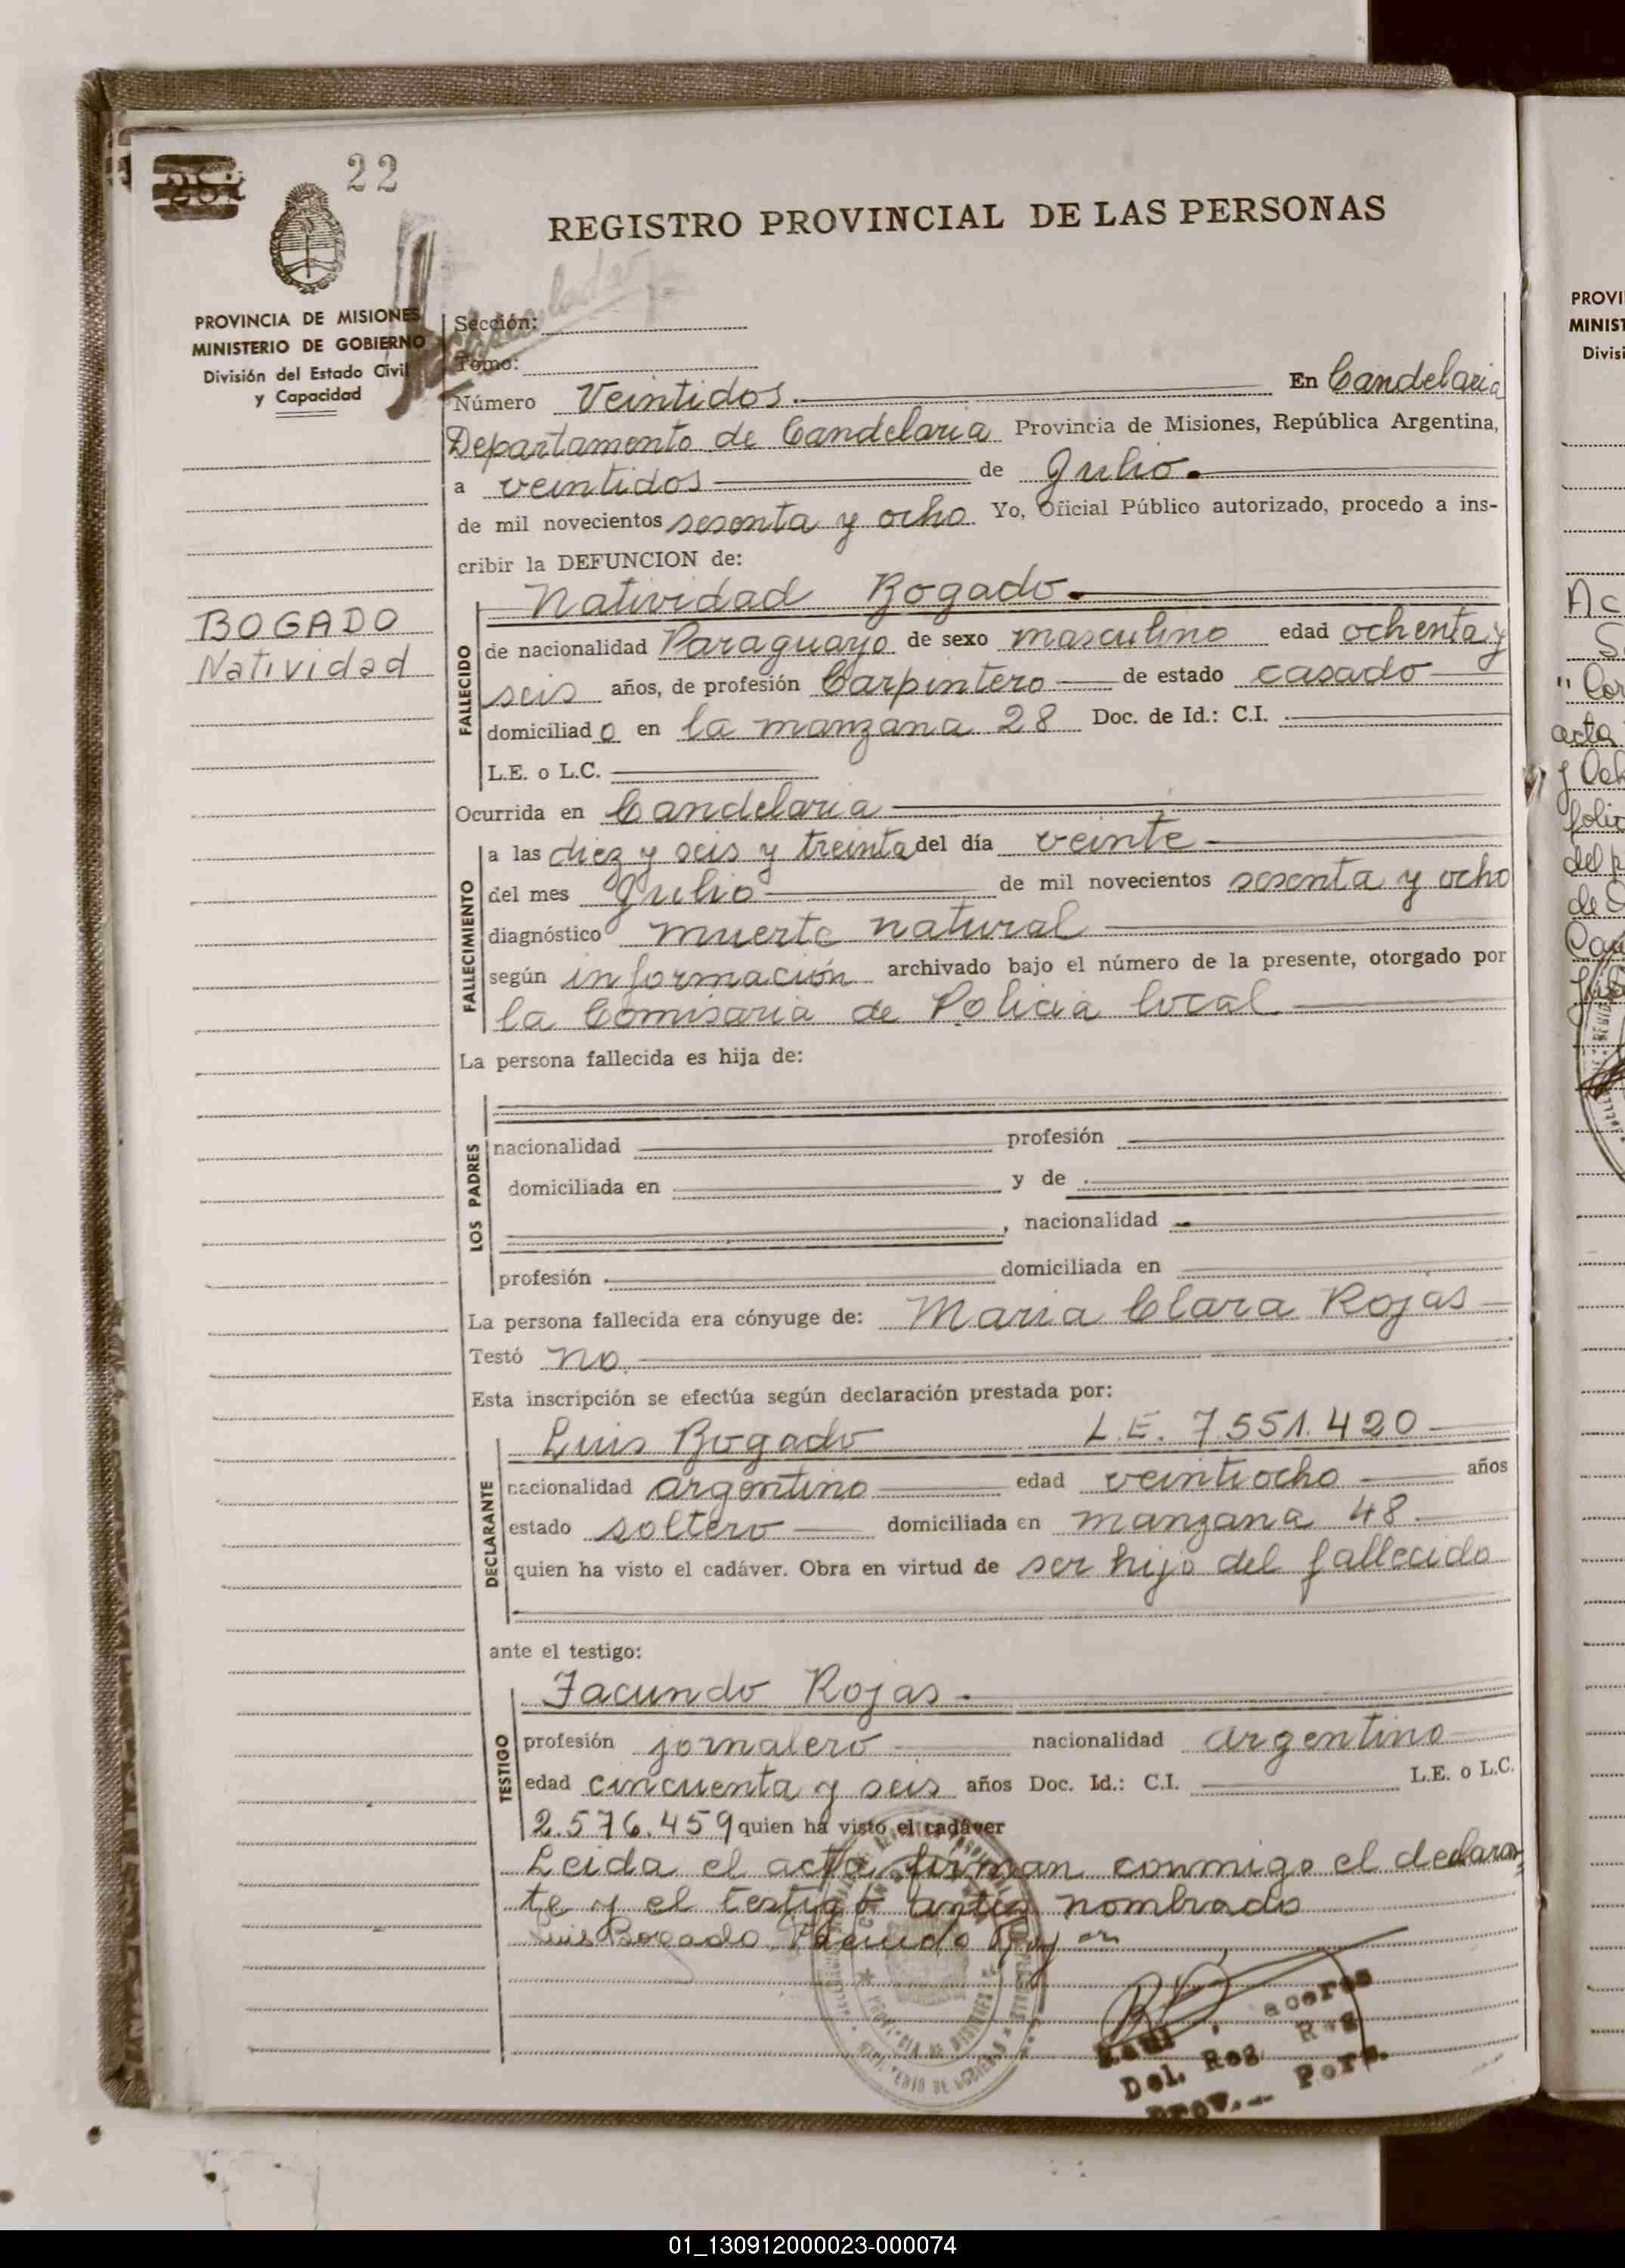 22
REGISTRO PROVINCIAL DE LAS PERSONAS
PROVINCIA DE MISIONES
MINISTERIO DE GOBIERNO
División del Estado Civil
y Capacidad
BOGADO
Natividad
Sección:
Tomo:
Número Veintidos. En Candelaria
Departamento de Candelaria Provincia de Misiones, República Argentina,
a veintidos de Julio.
de mil novecientos sesenta y ocho Yo, Oficial Público autorizado, procedo a ins-
cribir la DEFUNCION de:
Natividad Bogado.
FALLECIDO
de nacionalidad Paraguayo de sexo masculino edad ochenta y
seis años, de profesión Carpintero de estado casado
domiciliado en la manzana 28 Doc. de Id.: C.I.
L.E. o L.C.
Ocurrida en Candelaria
FALLECIMIENTO
a las diez y seis y treinta del día veinte
del mes Julio de mil novecientos sesenta y ocho
diagnóstico muerte natural
según información archivado bajo el número de la presente, otorgado por
la Comisaria de Policia local
La persona fallecida es hija de:
LOS PADRES
nacionalidad profesión
domiciliada en y de
, nacionalidad
profesión domiciliada en
La persona fallecida era cónyuge de: Maria Clara Rojas
Testó no
Esta inscripción se efectúa según declaración prestada por:
Luis Bogado L.E. 7.551.420
DECLARANTE
nacionalidad argentino edad veintiocho años
estado soltero domiciliada en manzana 48
quien ha visto el cadáver. Obra en virtud de ser hijo del fallecido
ante el testigo:
Facundo Rojas.
TESTIGO
profesión jornalero nacionalidad argentino
edad cincuenta y seis años Doc. Id.: C.I. L.E. o L.C.
2.576.459 quien ha visto el cadáver
Leida el acta, firman conmigo el declaran-
te y el testigo antes nombrado
Luis Bogado Facundo Rojas
Del. Reg.
Prov. Pers.
PROVI
MINIST
Divisi
01_130912000023-000074